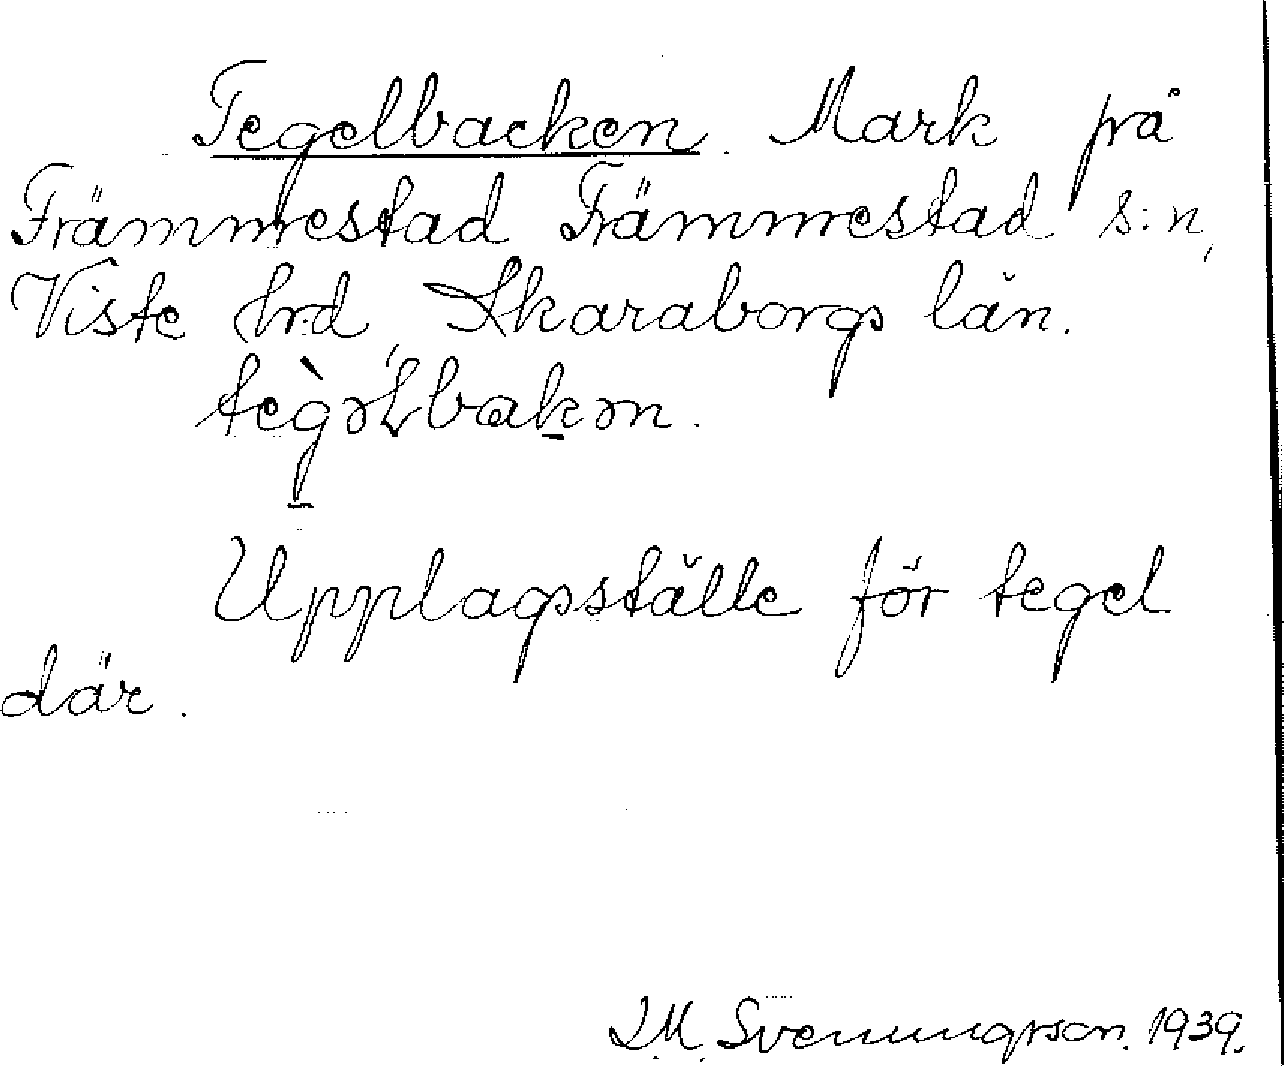 Tegelbacken. Mark på
Främmestad Främmestad s:n,
Viste hrd, Skaraborgs län.
tègəⱢbakən.
Upplagsställe för tegel
där.
Svenungsson. 1939.